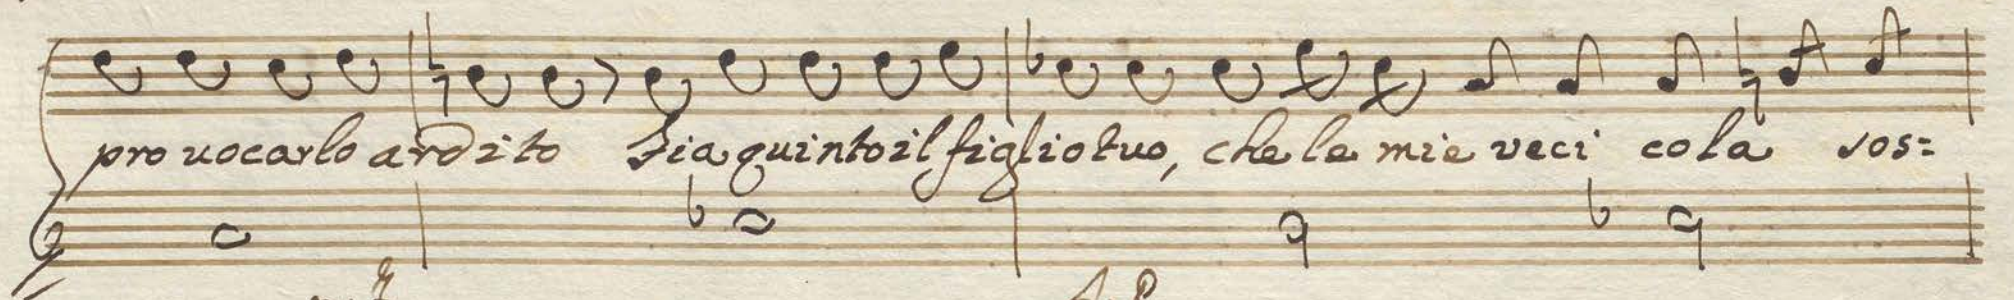 pro uocarlo ardito Sia quinto il figlio tuo, che le mie veci cola sos=